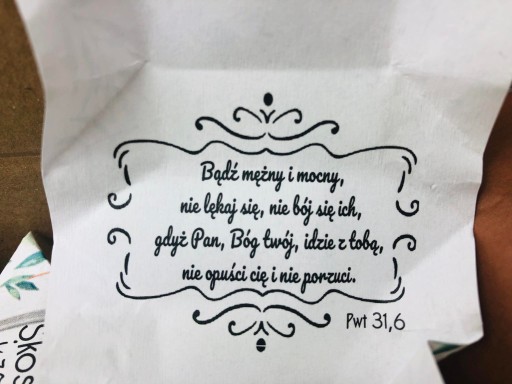 Bądź mężny i mocny,
nie lękaj się, nie bój się ich,
gdyż Pan, Bóg twój, idzie z tobą,
nie opuści cię i nie porzuci.
Pwt 31,6
Skos